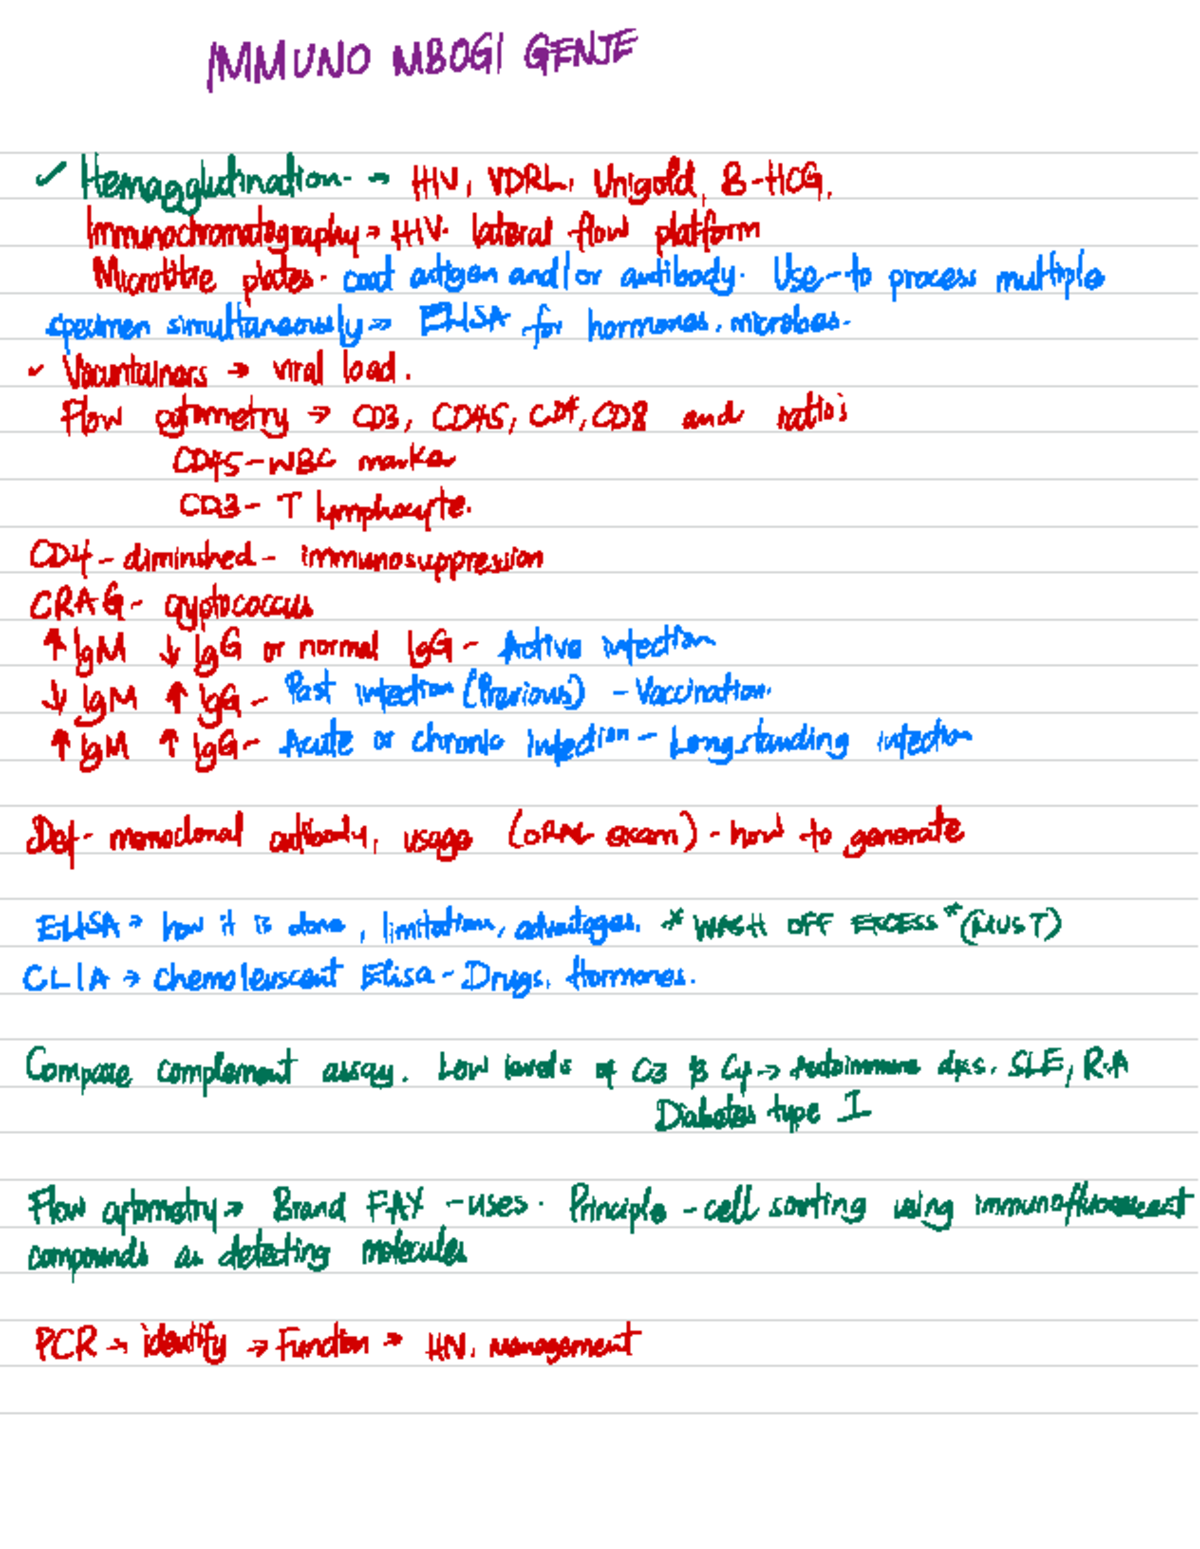 IMMUNO MBOGI GENJE
✓ Hemagglutination → HIV, VDRL, Unigold, B-HCG.
Immunochromatography → HIV. lateral flow platform
Microtitre plates. coat antigen and/or antibody. Use - to process multiple
specimen simultaneously → ELISA for hormones, microbes.
✓ Vacuntainers → viral load.
Flow cytometry → CD3, CD45, CD4, CD8 and ratio's
CD45 - WBC marker
CD3 - T lymphocyte.
CD4 - diminshed - immunosuppression
CRAG - cryptococcus
↑ IgM ↓ IgG or normal IgG - Active infection
↓ IgM ↑ IgG - Past infection (Previous) - Vaccination.
↑ IgM ↑ IgG - Acute or chronic infection - Longstanding infection
Def - monoclonal antibody, usage (ORAL exam) - how to generate
ELISA → how it is done, limitation, advantages. * WASH OFF EXCESS * (MUST)
CLIA → Chemoleuscent Elisa - Drugs, Hormones.
Compare complement assay. Low levels of C3 & C4 → Autoimmune dxs. SLE, R.A
Diabetes type I
Flow cytometry → Brand FAX - uses. Principle - cell sorting using immunofluorescent
compounds as detecting molecules
PCR → identify → Function → HIV. management